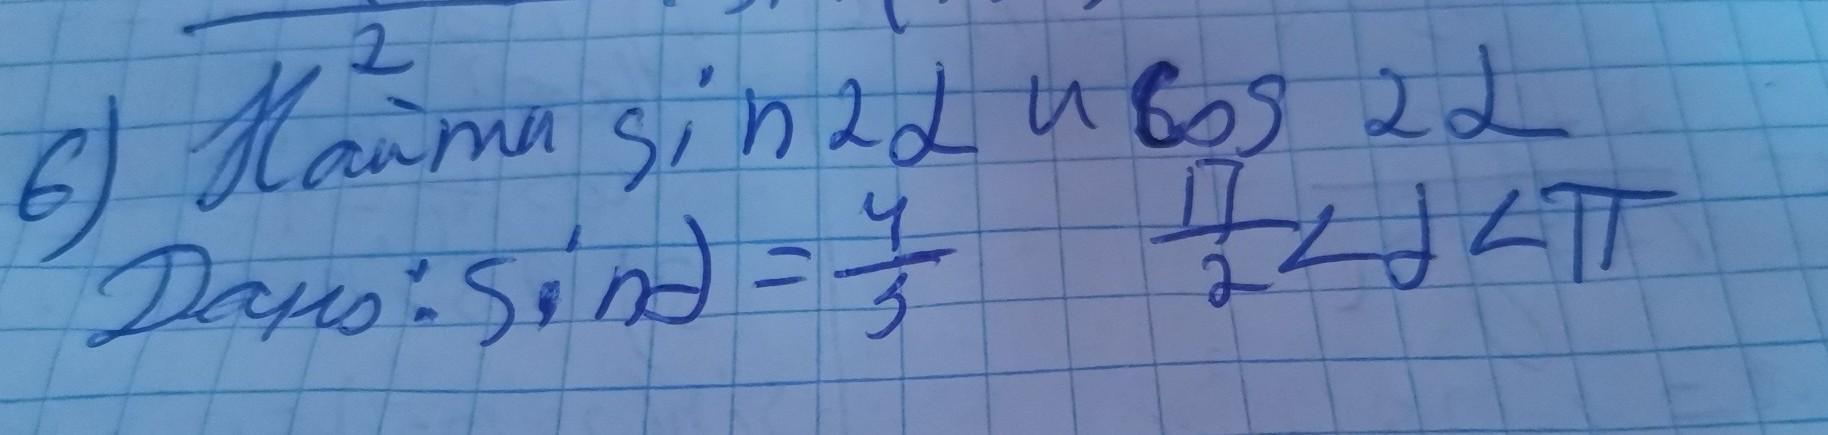 2
6) Найти sin 2α и cos 2α
Дано: sin α = 4/5 π/2 < α < π